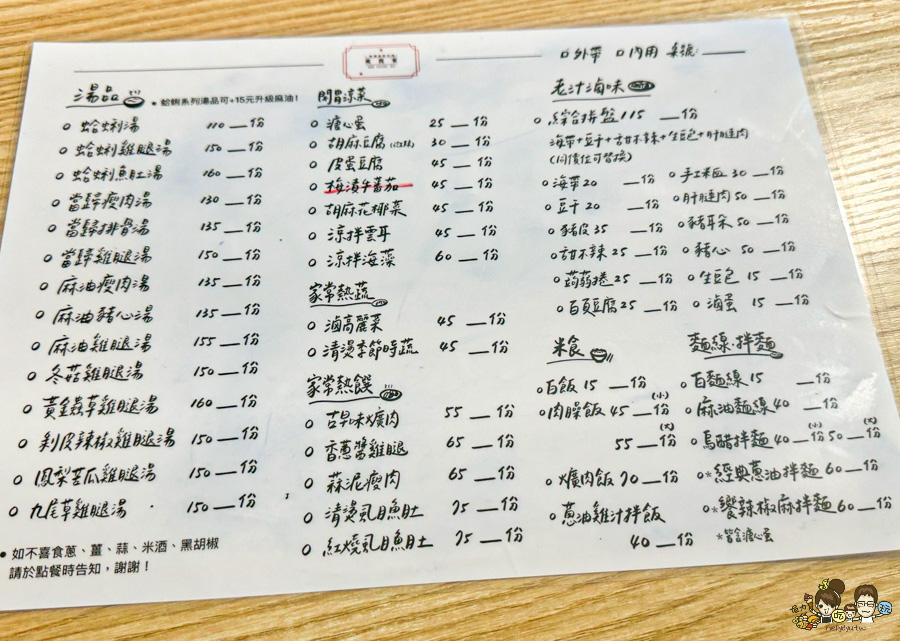 □外帶 □內用 桌號:
湯品
● 蛤蜊系列湯品可+15元升級麻油!
○ 蛤蜊湯 110 __份
○ 蛤蜊雞腿湯 150 __份
○ 蛤蜊魚肚湯 160 __份
○ 當歸瘦肉湯 130 __份
○ 當歸排骨湯 135 __份
○ 當歸雞腿湯 150 __份
○ 麻油瘦肉湯 135 __份
○ 麻油豬心湯 135 __份
○ 麻油雞腿湯 155 __份
○ 冬菇雞腿湯 150 __份
○ 黃金蟲草雞腿湯 160 __份
○ 剝皮辣椒雞腿湯 150 __份
○ 鳳梨苦瓜雞腿湯 150 __份
○ 九尾草雞腿湯 150 __份
● 如不喜食蔥、薑、蒜、米酒、黑胡椒
請於點餐時告知,謝謝!
開胃涼菜
○ 溏心蛋 25 __份
○ 胡麻豆腐 30 __份
○ 皮蛋豆腐 45 __份
○ 梅漬牛番茄 45 __份
○ 胡麻花椰菜 45 __份
○ 涼拌雲耳 45 __份
○ 涼拌海藻 60 __份
家常熱蔬
○ 滷高麗菜 45 __份
○ 清燙季節時蔬 45 __份
家常熱饌
○ 古早味爌肉 55 __份
○ 香蔥醬雞腿 65 __份
○ 蒜泥瘦肉 65 __份
○ 清燙虱目魚肚 75 __份
○ 紅燒虱目魚肚 75 __份
老汁滷味
○ 綜合拼盤 115 __份
海帶+豆干+甜不辣+生豆包+肝腱肉
(同價位可替換)
○ 海帶 20 __份
○ 豆干 20 __份
○ 豬皮 35 __份
○ 甜不辣 25 __份
○ 蒟蒻捲 25 __份
○ 百頁豆腐 25 __份
○ 手工米血 30 __份
○ 肝腱肉 50 __份
○ 豬耳朵 50 __份
○ 豬心 50 __份
○ 生豆包 15 __份
○ 滷蛋 15 __份
米食
○ 白飯 15 __份
○ 肉臊飯 45 __份(小)
55 __份(大)
○ 爌肉飯 70 __份
○ 蔥油雞汁拌飯
40 __份
麵線·拌麵
○ 白麵線 15 __份
○ 麻油麵線 40 __份
○ 烏醋拌麵 40 __份(小) 50 __份(大)
○ *經典蔥油拌麵 60 __份
○ *饗辣椒麻拌麵 60 __份
*皆含溏心蛋